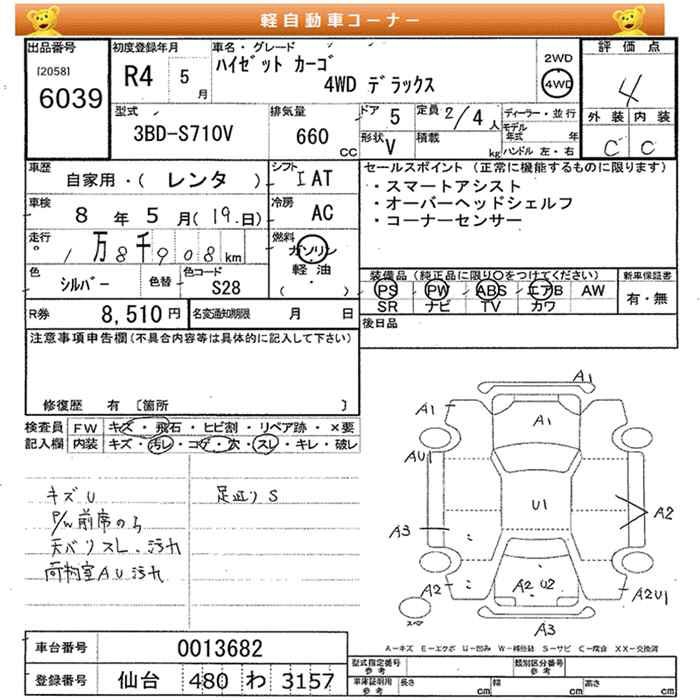 軽自動車コーナー
出品番号 初度登録年月 車名・グレード 2WD 評価点
[2058] R4 5月 ハイゼット カーゴ 4WD
6039 4WD デラックス 4
型式 排気量 ドア 5 定員 2/4人 ディーラー・並行 外装 内装
3BD-S710V 660CC 形状 V 積載 kg モデル年式 年 C C
ハンドル 左・右
車歴 自家用・( レンタ ) シフト IAT セールスポイント (正常に機能するものに限ります)
・スマートアシスト
車検 8年 5月(19.日) 冷房 AC ・オーバーヘッドシェルフ
・コーナーセンサー
走行 1万8千908km 燃料 ガソリン
軽油
( ・ )
色 シルバー 色替 色コード S28 装備品 (純正品に限り○をつけてください) 新車保証書
PS PW ABS エアB AW 有・無
SR ナビ TV カワ
R券 8,510円 名変通知期限 月 日 後日品
注意事項申告欄(不具合内容等は具体的に記入して下さい)
修復歴 有 〔箇所 〕
検査員 FW キズ・飛石・ヒビ割・リペア跡・×要
記入欄 内装 キズ・汚レ・コゲ・穴・スレ・キレ・破レ
キズU 足廻りS
P/W前席のミ
天バリスレ、汚れ
荷物室AU汚れ
A1
A1 A1
AU1
U1
A3 A2
A2 A2 U2 A2U1
スペア A3
A-キズ E-エクボ U-凹み W-補修跡 S-サビ C-腐食 XX-交換済
車台番号 0013682
登録番号 仙台 480 わ 3157
型式指定番号 参考 類別区分番号 参考
車庫証明用 参考 長さ cm 幅 cm 高さ cm